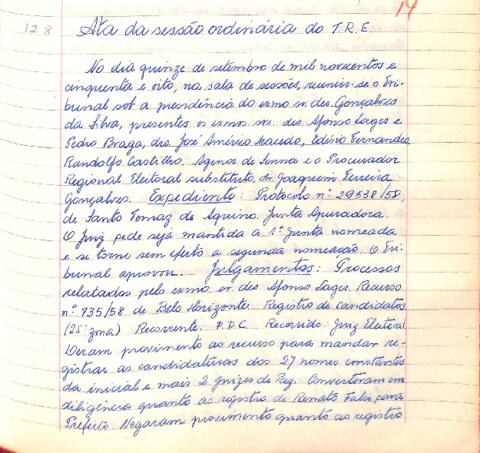 14
128 Ata da sessão ordinária do T.R.E.
No dia quinze de setembro de mil novecentos e
cinquenta e oito, na sala de sessões, reuniu-se o Tri-
bunal sob a presidência do exmo sr. des. Gonçalves
da Silva, presentes os exmos. srs. des. Afonso Lages e
Pedro Braga, drs. José Américo Macedo, Edésio Fernandes,
Randolfo Castilho, Agenor de Senna e o Procurador
Regional Eleitoral substituto, dr. Joaquim Ferreira
Gonçalves. Expediente: Protocolo nº 29538/58,
de Santo Tomaz de Aquino. Junta Apuradora.
O Juiz pede seja mantida a 1ª Junta nomeada
e se torne sem efeito a segunda nomeação. O Tri-
bunal aprovou. Julgamentos: Processos
relatados pelo exmo sr. des. Afonso Lages. Recurso
nº 735/58 de Belo Horizonte. Registro de candidatos
(25ª zona.) Recorrente: P.D.C. Recorrido: Juiz Eleitoral.
Deram provimento ao recurso para mandar re-
gistrar as candidaturas dos 27 nomes constantes
da inicial e mais 2 juizes de Paz. Converteram em
diligência quanto ao registro de Renato Falci para
Prefeito. Negaram provimento quanto ao registro